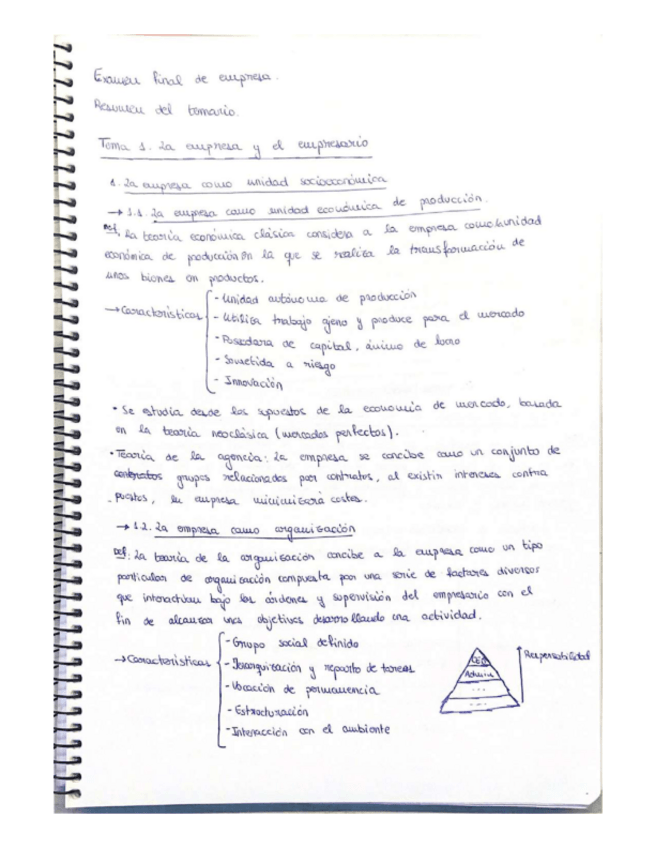 Examen final de empresa.
Resumen del temario.
Tema 1. La empresa y el empresario
1. La empresa como unidad socioeconómica
→ 1.1. La empresa como unidad económica de producción.
Def. La teoría económica clásica considera a la empresa como unidad
económica de producción en la que se realiza la transformación de
unos bienes en productos.
→ Características
- Unidad autónoma de producción
- Utiliza trabajo ajeno y produce para el mercado
- Poseedora de capital, ánimo de lucro
- Sometida a riesgo
- Innovación
• Se estudia desde los supuestos de la economía de mercado, basada
en la teoría neoclásica (mercados perfectos).
• Teoría de la agencia: La empresa se concibe como un conjunto de
contratos grupos relacionados por contratos, al existir intereses contra
puestos, la empresa minimizará costes.
→ 1.2. La empresa como organización
Def: La teoría de la organización concibe a la empresa como un tipo
particular de organización compuesta por una serie de factores diversos
que interactúan bajo las órdenes y supervisión del empresario con el
fin de alcanzar unos objetivos desarrollando una actividad.
→ Características
- Grupo social definido
- Jerarquización y reparto de tareas
- Vocación de permanencia
- Estructuración
- Interacción con el ambiente
CEO
Admin
...
...
Responsabilidad